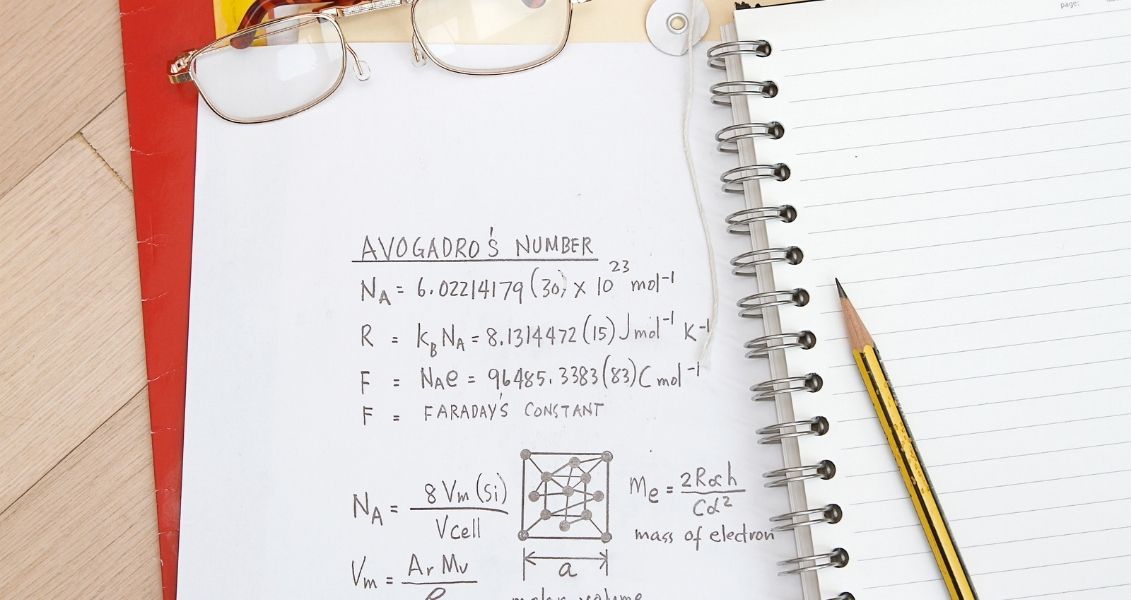 page:
AVOGADRO'S NUMBER
N_A = 6.02214179(30) × 10^23 mol^-1
R = k_B N_A = 8.1314472(15) J mol^-1 K^-1
F = N_A e = 96485.3383(83) C mol^-1
F = FARADAY'S CONSTANT
N_A = 8 Vm (Si) / Vcell
Me = 2R∞h / Cα^2
mass of electron
a
Vm = Ar Mu / ρ
molar volume